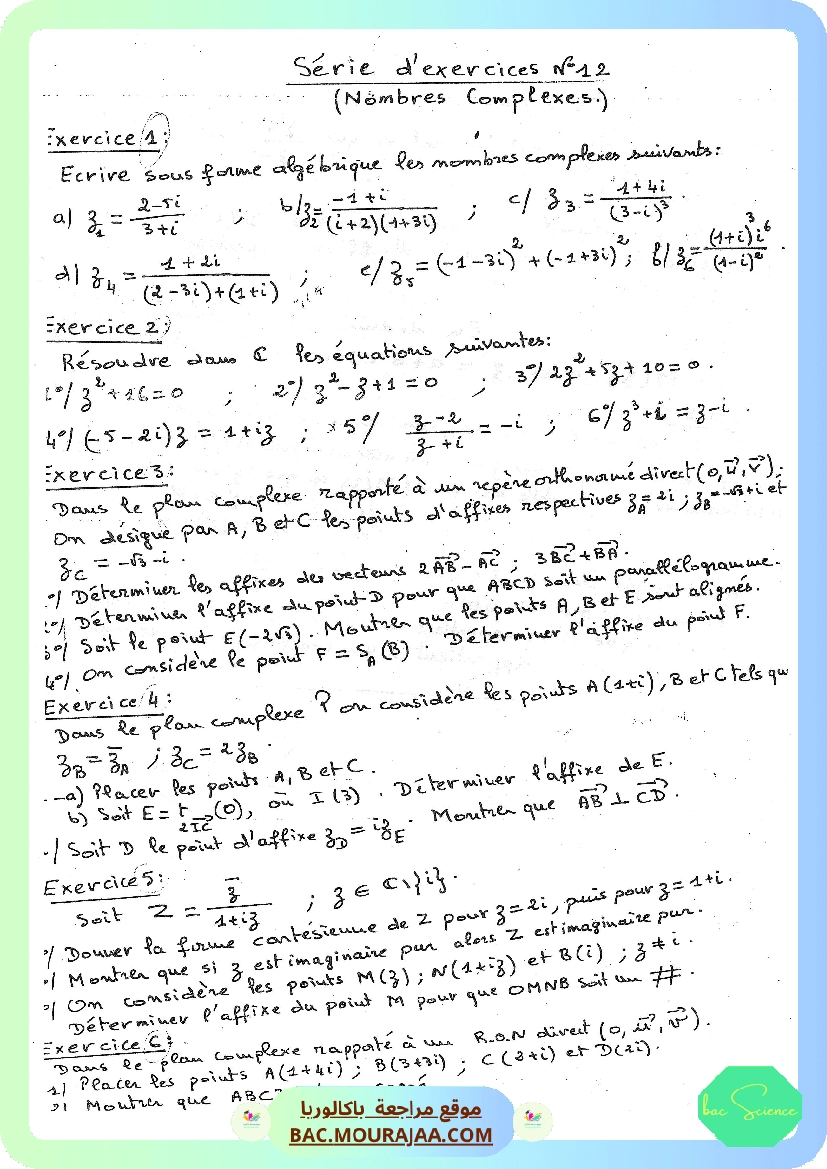 Série d'exercices N°12
(Nombres Complexes.)
Exercice 1:
Ecrire sous forme algébrique les nombres complexes suivants:
a) z₁ = (2-5i)/(3+i) ; b/ z₂ = (-1+i)/((i+2)(1+3i)) ; c/ z₃ = (1+4i)/(3-i)³ .
d) z₄ = (1+2i)/((2-3i)+(1+i)) ; e/ z₅ = (-1-3i)² + (-1+3i)² ; f/ z₆ = (1+i)³i⁶/(1-i)² .
Exercice 2:
Résoudre dans ℂ les équations suivantes:
1°/ z² + 16 = 0 ; 2°/ z² - z + 1 = 0 ; 3°/ 2z² + 5z + 10 = 0 .
4°/ (-5-2i)z = 1+iz ; 5°/ (z-2)/(z+i) = -i ; 6°/ z³ + i = z-i .
Exercice 3:
Dans le plan complexe rapporté à un repère orthonormé direct (O, u⃗, v⃗);
On désigne par A, B et C les points d'affixes respectives z_A = 2i ; z_B = -√3+i et
z_C = -√3-i .
°/ Déterminer les affixes des vecteurs 2AB⃗ - AC⃗ ; 3BC⃗ + BA⃗ .
°/ Déterminer l'affixe du point D pour que ABCD soit un parallélogramme.
3°/ Soit le point E(-2√3). Montrer que les points A, B et E sont alignés.
4°/ On considère le point F = S_A(B) . Déterminer l'affixe du point F.
Exercice 4:
Dans le plan complexe P on considère les points A(1+i), B et C tels qu
z_B = z̄_A ; z_C = 2z_B .
-a) Placer les points A, B et C.
b) Soit E = t_2IC⃗ (O), où I(3) . Déterminer l'affixe de E.
/ Soit D le point d'affixe z_D = iz_E . Montrer que AB⃗ ⊥ CD⃗ .
Exercice 5:
Soit Z = z̄/(1+iz) ; z ∈ ℂ\{i}.
°/ Donner la forme cartésienne de Z pour z = 2i, puis pour z = 1+i.
°/ Montrer que si z est imaginaire pur alors Z est imaginaire pur.
°/ On considère les points M(z) ; N(1+iz) et B(i) ; z ≠ i .
Déterminer l'affixe du point M pour que OMNB soit un #.
Exercice 6:
Dans le plan complexe rapporté à un R.O.N direct (O, u⃗, v⃗).
1) Placer les points A(1+4i) ; B(3+3i) ; C(2+i) et D(2i).
2) Montrer que ABC
موقع مراجعة باكالوريا
BAC.MOURAJAA.COM
bac Science